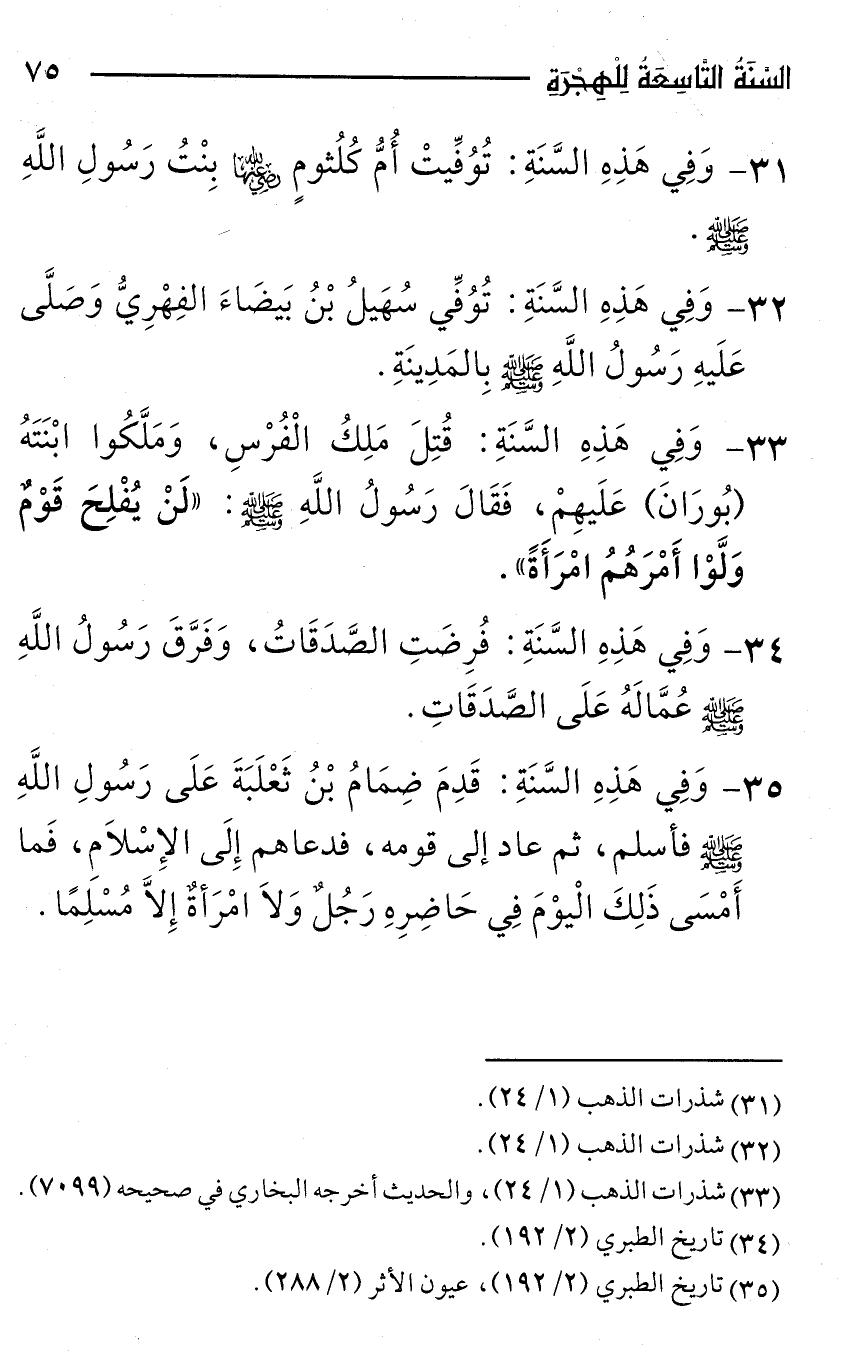 السَّنَةُ التَّاسِعَةُ لِلْهِجْرَةِ ٧٥
٣١- وَفِي هَذِهِ السَّنَةِ: تُوُفِّيتْ أُمُّ كُلُثومٍ رضي الله عنها بِنْتُ رَسُولِ اللَّهِ
ﷺ.
٣٢- وَفِي هَذِهِ السَّنَةِ: تُوُفِّي سُهَيلُ بْنُ بَيضَاءَ الفِهْرِيُّ وَصَلَّى
عَلَيهِ رَسُولُ اللَّهِ ﷺ بِالمَدِينَةِ.
٣٣- وَفِي هَذِهِ السَّنَةِ: قُتِلَ مَلِكُ الْفُرْسِ، وَمَلَّكُوا ابْنَتَهُ
(بُورَانَ) عَلَيهِمْ، فَقَالَ رَسُولُ اللَّهِ ﷺ: «لَنْ يُفْلِحَ قَوْمٌ
وَلَّوْا أَمْرَهُمُ امْرَأَةً».
٣٤- وَفِي هَذِهِ السَّنَةِ: فُرِضَتِ الصَّدَقَاتُ، وَفَرَّقَ رَسُولُ اللَّهِ
ﷺ عُمَّالَهُ عَلَى الصَّدَقَاتِ.
٣٥- وَفِي هَذِهِ السَّنَةِ: قَدِمَ ضِمَامُ بْنُ ثَعْلَبَةَ عَلَى رَسُولِ اللَّهِ
ﷺ فأسلم، ثم عاد إلى قومه، فدعاهم إِلَى الإِسْلاَمِ، فَما
أَمْسَى ذَلِكَ الْيوْمَ فِي حَاضِرِهِ رَجُلٌ وَلاَ امْرَأةٌ إِلاَّ مُسْلِمًا.
(٣١) شذرات الذهب (١/ ٢٤).
(٣٢) شذرات الذهب (١/ ٢٤).
(٣٣) شذرات الذهب (١/ ٢٤)، والحديث أخرجه البخاري في صحيحه (٧٠٩٩).
(٣٤) تاريخ الطبري (٢/ ١٩٢).
(٣٥) تاريخ الطبري (٢/ ١٩٢)، عيون الأثر (٢/ ٢٨٨).